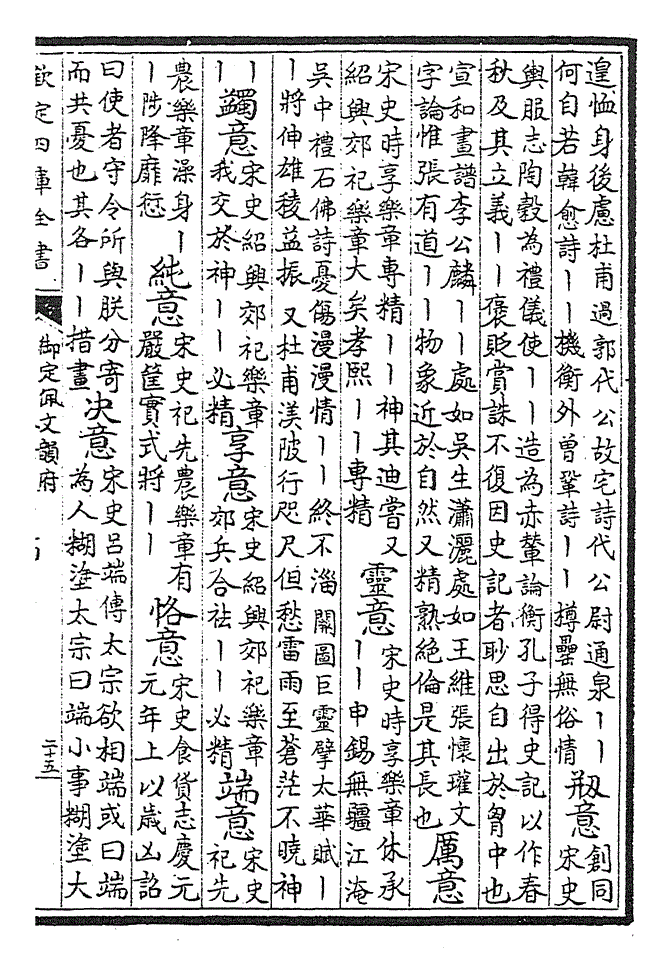 遑恤身後慮杜甫過郭代公故宅詩代公尉通泉丨丨
何自若韓愈詩丨丨機衡外曾鞏詩丨丨樽罍無俗情
剏意
創同
宋史
輿服志陶穀為禮儀使丨丨造為赤輦論衡孔子得史記以作春
秋及其立義丨丨褒貶賞誅不復因史記者眇思自出於胷中也
宣和畫譜李公麟丨丨處如吳生瀟灑處如王維張懷瓘文
字論惟張有道丨丨物象近於自然又精熟絕倫是其長也
厲意
宋史時享樂章專精丨丨神其迪嘗又
紹興郊祀樂章大矣孝熙丨丨專精
靈意
宋史時享樂章休承
丨丨申錫無疆江淹
吳中禮石佛詩憂傷漫漫情丨丨終不淄 開圖巨靈擘太華賦丨
丨將伸雄稜益振 又杜甫渼陂行咫尺但愁雷雨至蒼茫不曉神
丨
丨
蠲意
宋史紹興郊祀樂章
我交於神丨丨必精
享意
宋史紹興郊祀樂章
郊兵合祛丨丨必精
端意
宋史
祀先
農樂章澡身丨
丨陟降靡愆
純意
宋史祀先農樂章有
嚴筐實式將丨丨
恪意
宋史食貨志慶元
元年上以歲凶詔
曰使者守令所與朕分寄
而共憂也其各丨丨措畫
决意
宋史呂端傳太宗欲相端或曰端
為人糊塗太宗曰端小事糊塗大
欽定四庫全書
御定佩文韻府
二十五